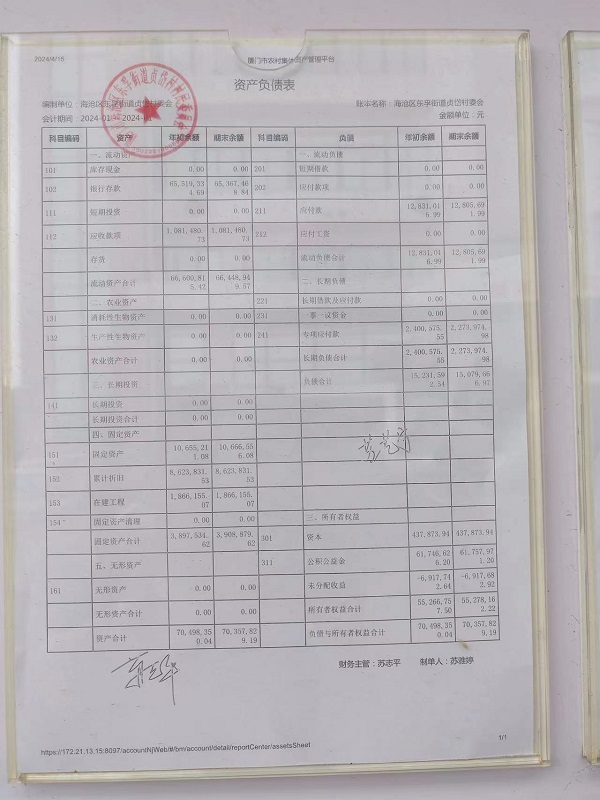 2024/4/15 厦门市农村集体资产管理平台
资产负债表
编制单位：海沧区东孚街道贞岱村委会 账本名称：海沧区东孚街道贞岱村委会
会计期间：2024-01—2024- 金额单位：元
科目编码 资产 年初余额 期末余额 科目编码 负债 年初余额 期末余额
一、流动资产 一、流动负债
101 库存现金 0.00 0.00 201 短期借款 0.00 0.00
102 银行存款 65,519,334.69 65,367,468.84 202 应付款项 0.00 0.00
111 短期投资 0.00 0.00 211 应付款 12,831,016.99 12,805,691.99
112 应收款项 1,081,480.73 1,081,480.73 212 应付工资 0.00 0.00
存货 0.00 0.00 流动负债合计 12,831,016.99 12,805,691.99
流动资产合计 66,600,815.42 66,448,949.57 二、长期负债
二、农业资产 221 长期借款及应付款 0.00 0.00
131 消耗性生物资产 0.00 0.00 231 一事一议资金 0.00 0.00
132 生产性生物资产 0.00 0.00 241 专项应付款 2,400,575.55 2,273,974.98
农业资产合计 0.00 0.00 长期负债合计 2,400,575.55 2,273,974.98
三、长期投资 负债合计 15,231,592.54 15,079,666.97
141 长期投资 0.00 0.00
长期投资合计 0.00 0.00
四、固定资产
151 固定资产 10,655,211.08 10,666,556.08
152 累计折旧 8,623,831.53 8,623,831.53
153 在建工程 1,866,155.07 1,866,155.07
154 固定资产清理 0.00 0.00 三、所有者权益
固定资产合计 3,897,534.62 3,908,879.62 301 资本 437,873.94 437,873.94
五、无形资产 311 公积公益金 61,746,626.20 61,757,971.20
161 无形资产 0.00 0.00 未分配收益 -6,917,742.64 -6,917,682.92
无形资产合计 0.00 0.00 所有者权益合计 55,266,757.50 55,278,162.22
资产合计 70,498,350.04 70,357,829.19 负债与所有者权益合计 70,498,350.04 70,357,829.19
财务主管：苏志平 制单人：苏雅婷
1/1
https://172.21.13.15:8097/accountNjWeb/#/bm/account/detail/reportCenter/assetsSheet